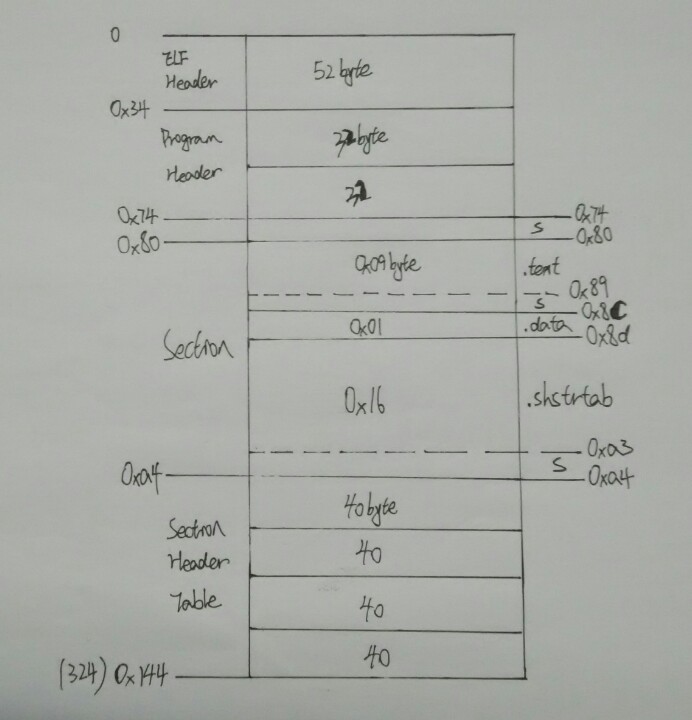 0
ELF
Header
52 byte
0x34
Program
Header
32 byte
32
0x74
0x74
S
0x80
0x80
0x09 byte
.text
0x89
S
0x8C
0x01
.data
0x8d
Section
0x16
.shstrtab
0xa3
S
0xa4
0xa4
40 byte
Section
Header
Table
40
40
40
(324) 0x144